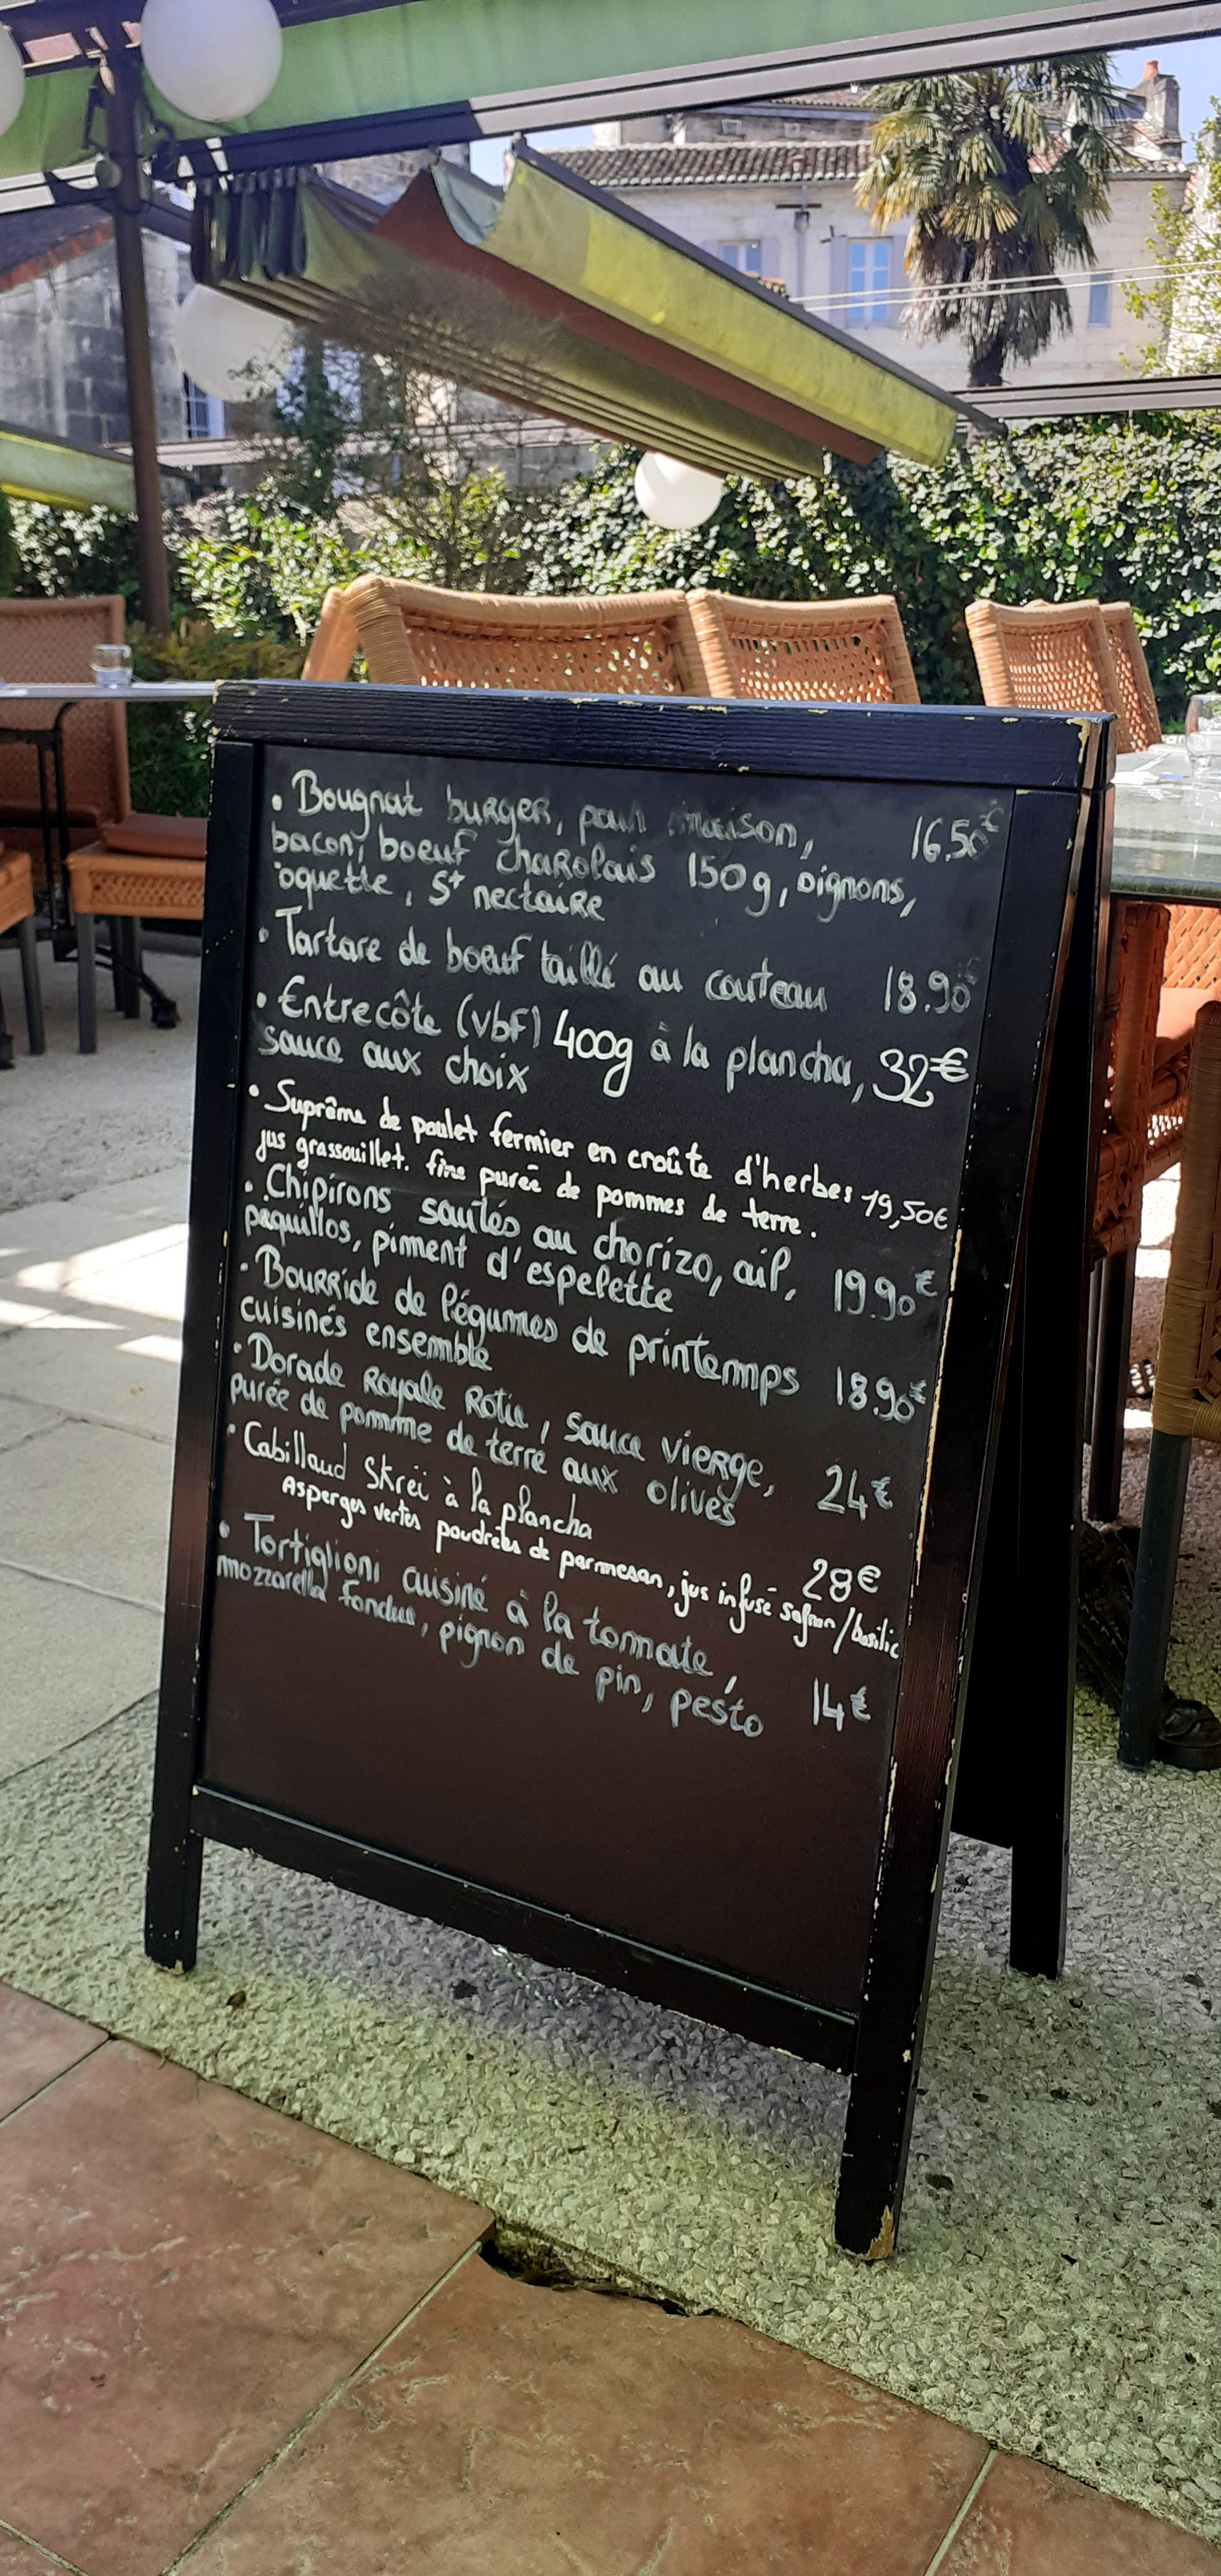 • Bougnat burger, pain maison, 16.50€
bacon, boeuf chaRolais 150g, oignons,
oquette, St nectaiRe
• Tartare de boeuf taillé au couteau 18.90
• Entrecôte (vbf) 400g à la plancha, 32€
sauce aux choix
• Suprême de poulet fermier en croûte d'herbes 19,50€
jus grassouillet. fine purée de pommes de terre.
• Chipirons sautés au chorizo, ail, 19.90€
piquillos, piment d'espelette
• BouRRide de légumes de printemps 18.90€
cuisinés ensemble
• Dorade Royale Rotie, sauce vieRge, 24€
purée de pomme de terre aux olives
• Cabillaud Skreï à la plancha 28€
Asperges vertes poudrées de parmesan, jus infusé safran/basilic
• Tortiglioni cuisiné à la tomate, 14€
mozzarella fondue, pignon de pin, pesto